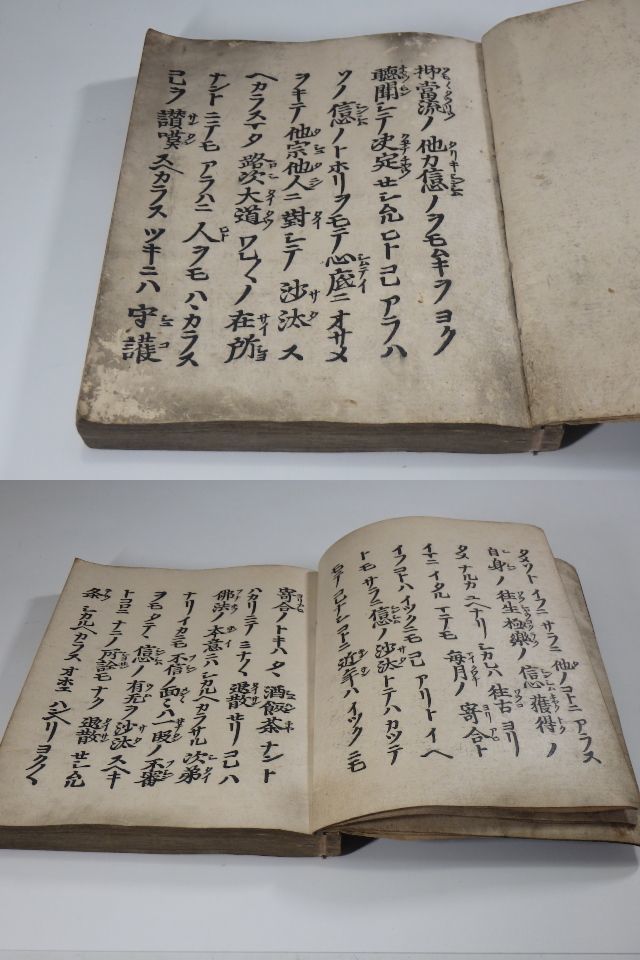 抑當流ノ他力信心ノヲモムキヲヨク
聽聞シテ决定セシムルヒトコレアラハ
ソノ信心ノトホリヲモテ心底ニオサメ
ヲキテ他宗他人ニ對シテ沙汰ス
ヘカラスマタ路次大道ワレ〱ノ在所
ナントニテモアラハニ人ヲモハヽカラス
コレヲ讃嘆スヘカラスツキニハ守護
タメソトイフニサラニ他ノコトニアラス
自身ノ往生極樂ノ信心獲得ノ
タメナルカユヘナリシカレハ往古ヨリ
イマニイタルマテモ毎月ノ寄合ト
イフコトハイツクニモコレアリトイヘ
トモサラニ信心ノ沙汰トテハカツテ
モテコレナシコトニ近年ハイツクニモ
寄合ノトキハタヽ酒飯茶ナント
ハカリニテミナ〱退散セリコレハ
佛法ノ本意ニハシカルヘカラサル次第
ナリイカニモ不信ノ面〱ハ一段ノ不審
ヲモタテヽ信心ノ有无ヲ沙汰スヘキ
トコロニナニノ所詮モナク退散セシムル
条シカルヘカラスオホエハンヘリヨク〱